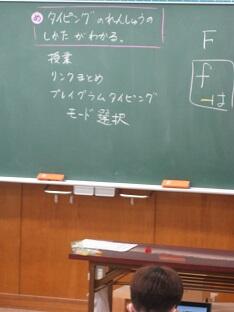 め タイピングのれんしゅうの
しかたがわかる。
授業
リンクまとめ
プレイグラムタイピング
モード選択
F
f
-は